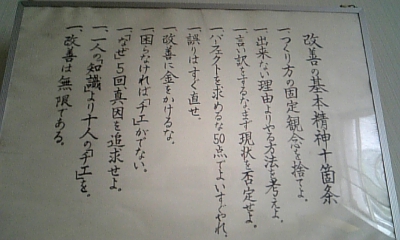 改善の基本精神十箇条
一、つくり方の固定観念を捨てよ。
一、出来ない理由よりやる方法を考えよ。
一、言い訳をするな、まず現状を否定せよ。
一、パーフェクトを求めるな50点でよいすぐやれ。
一、誤りはすぐ直せ。
一、改善に金をかけるな。
一、困らなければ「チエ」がでない。
一、「なぜ」5回真因を追求せよ。
一、一人の知識より十人の「チエ」を。
一、改善は無限である。